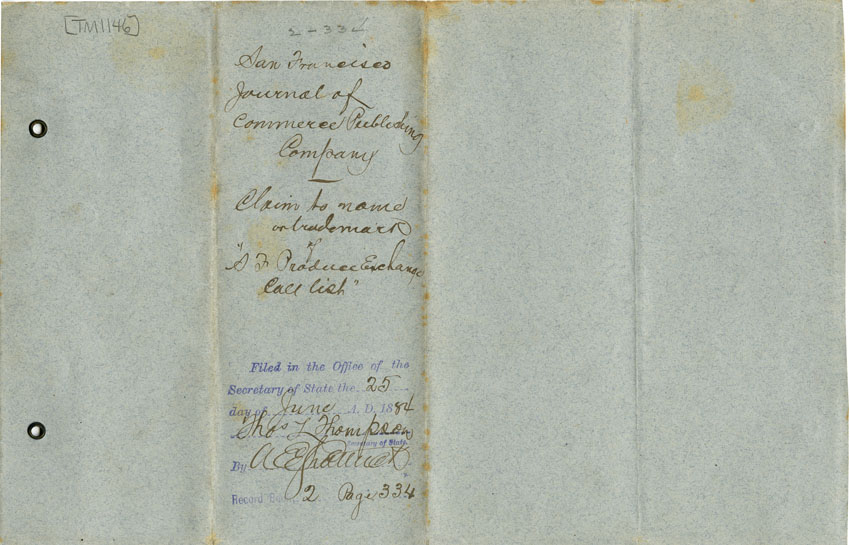 [TM1146]
2-334
San Francisco
Journal of
Commerce Publishing
Company
Claim to name
or trademark
of
"S F Produce Exchange
Call list"
Filed in the Office of the
Secretary of State the 25
day of June A. D. 1884
Thos L Thompson
Secretary of State.
By A E
Record Book 2 Page 334